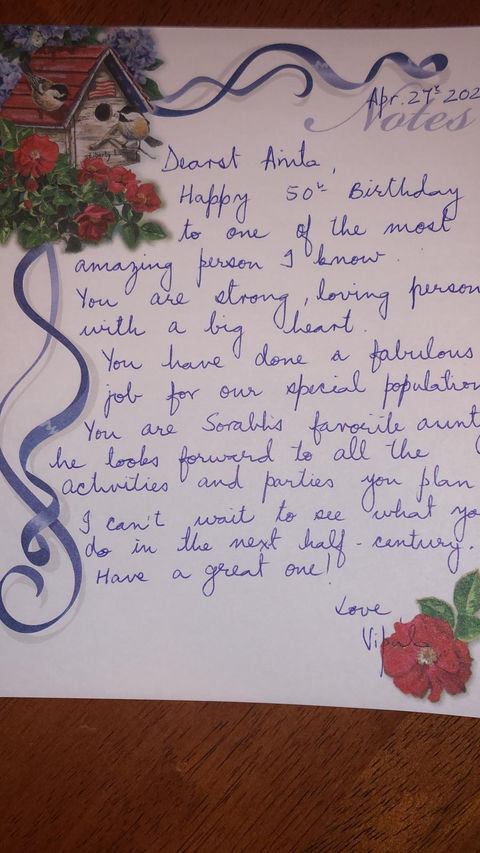 Apr. 27th 202
Notes
Dearst Anita,
Happy 50th Birthday
to one of the most
amazing person I know.
You are strong, loving person
with a big heart.
You have done a fabulous
job for our special population
You are Sorabhs favorite aunt
he looks forward to all the
activities and parties you plan
I can't wait to see what yo
do in the next half-century.
Have a great one!
Love